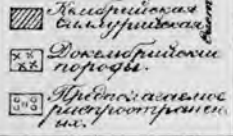 Кембрийская
силлурийская
Докембрийския
породы.
Предполагаемое
распространен
ых.